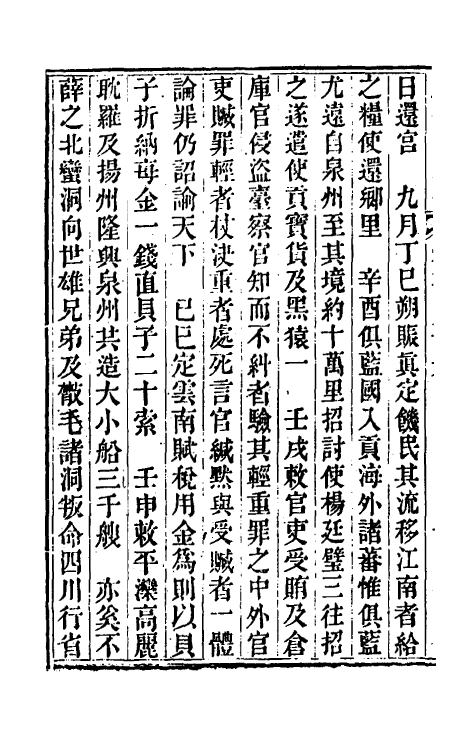 日還宮　九月丁巳朔賑眞定饑民其流移江南者給
之糧使還鄉里　辛酉俱藍國入貢海外諸蕃惟俱藍
尤遠自泉州至其境約十萬里招討使楊廷璧三往招
之遂遣使貢寶貨及黑猿一　壬戌敕官吏受賄及倉
庫官侵盜臺察官知而不糾者驗其輕重罪之中外官
吏贓罪輕者杖決重者處死言官緘默與受贓者一體
論罪仍詔諭天下　己巳定雲南賦稅用金爲則以貝
子折納每金一錢直貝子二十索　壬申敕平灤高麗
耽羅及揚州隆興泉州共造大小船三千艘　亦奚不
薛之北蠻洞向世雄兄弟及散毛諸洞叛命四川行省